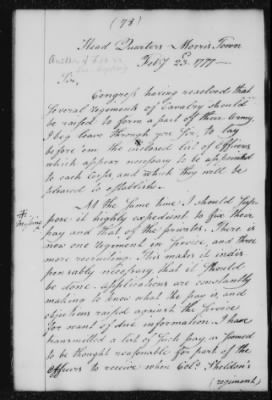 (75)
Head Quarters Morris Town
Feby 23. 1777—
Sir,
Congress having resolved that
several regiments of Cavalry should
be raised to form a part of their Army,
I beg leave through you Sir, to lay
before 'em the inclosed list of Officers
which appear necessary to be appointed
to each Corps and which they will be
pleased to establish.
At the same time I should sup
pose it highly expedient to fix their
pay and that of the privates. There is
now one regiment in service, and three
more recruiting. This makes it indis
pensably necessary that it should
be done. applications are constantly
making to know what the pay is, and
objections raised against the service
for want of due information. I have
transmitted a list of such pay as seemed
to be thought reasonable for part of the
Officers to receive when Colo. Sheldon's
(regiment)